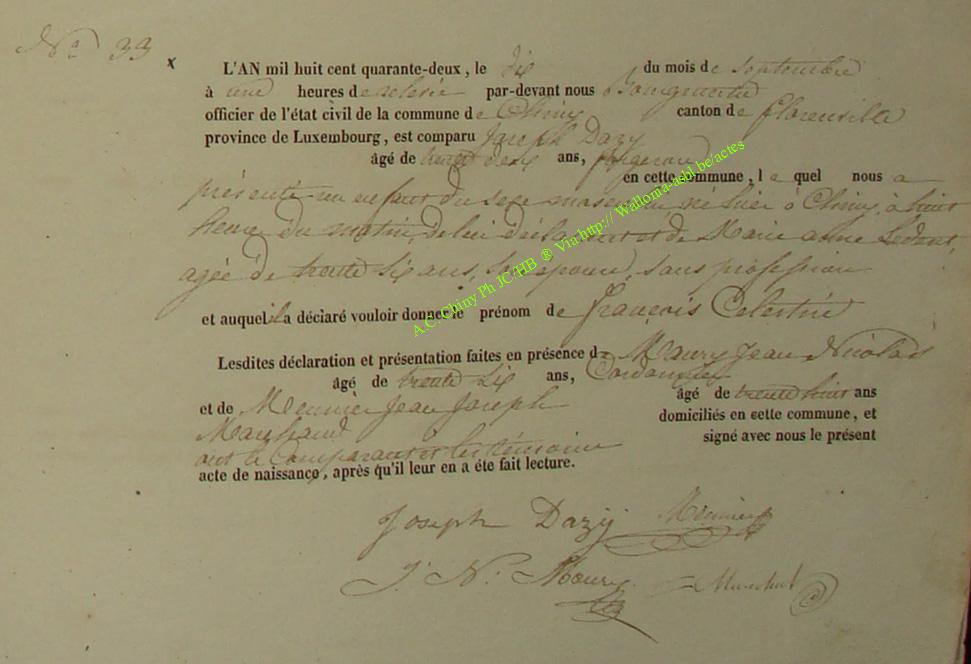 N° 33
L'AN mil huit cent quarante-deux, le dix du mois de Septembre
à une heures de relevée par-devant nous
officier de l'état civil de la commune de Chiny canton de florenville
province de Luxembourg, est comparu Joseph Dazy
âgé de trente deux ans, forgeron
en cette commune, le quel nous a
présenté un enfant du sexe masculin, né hier à Chiny, à huit
heure du matin, de lui déclarant et de Marie anne Ledant,
agée de trente six ans, son épouse, sans profession
et auquel il a déclaré vouloir donner le prénom de françois Celestin
Lesdites déclaration et présentation faites en présence de Maury Jean Nicolas
âgé de trente six ans, Cordonnier
et de Meunier Jean Joseph âgé de trente huit ans
Marchand domiciliés en cette commune, et
ont le Comparant et les témoins signé avec nous le présent
acte de naissance, après qu'il leur en a été fait lecture.
Joseph Dazÿ Meunier
J. N. Maury
A.C. Chiny Ph JC/HB ® Via http:// Wallonia-asbl.be/actes